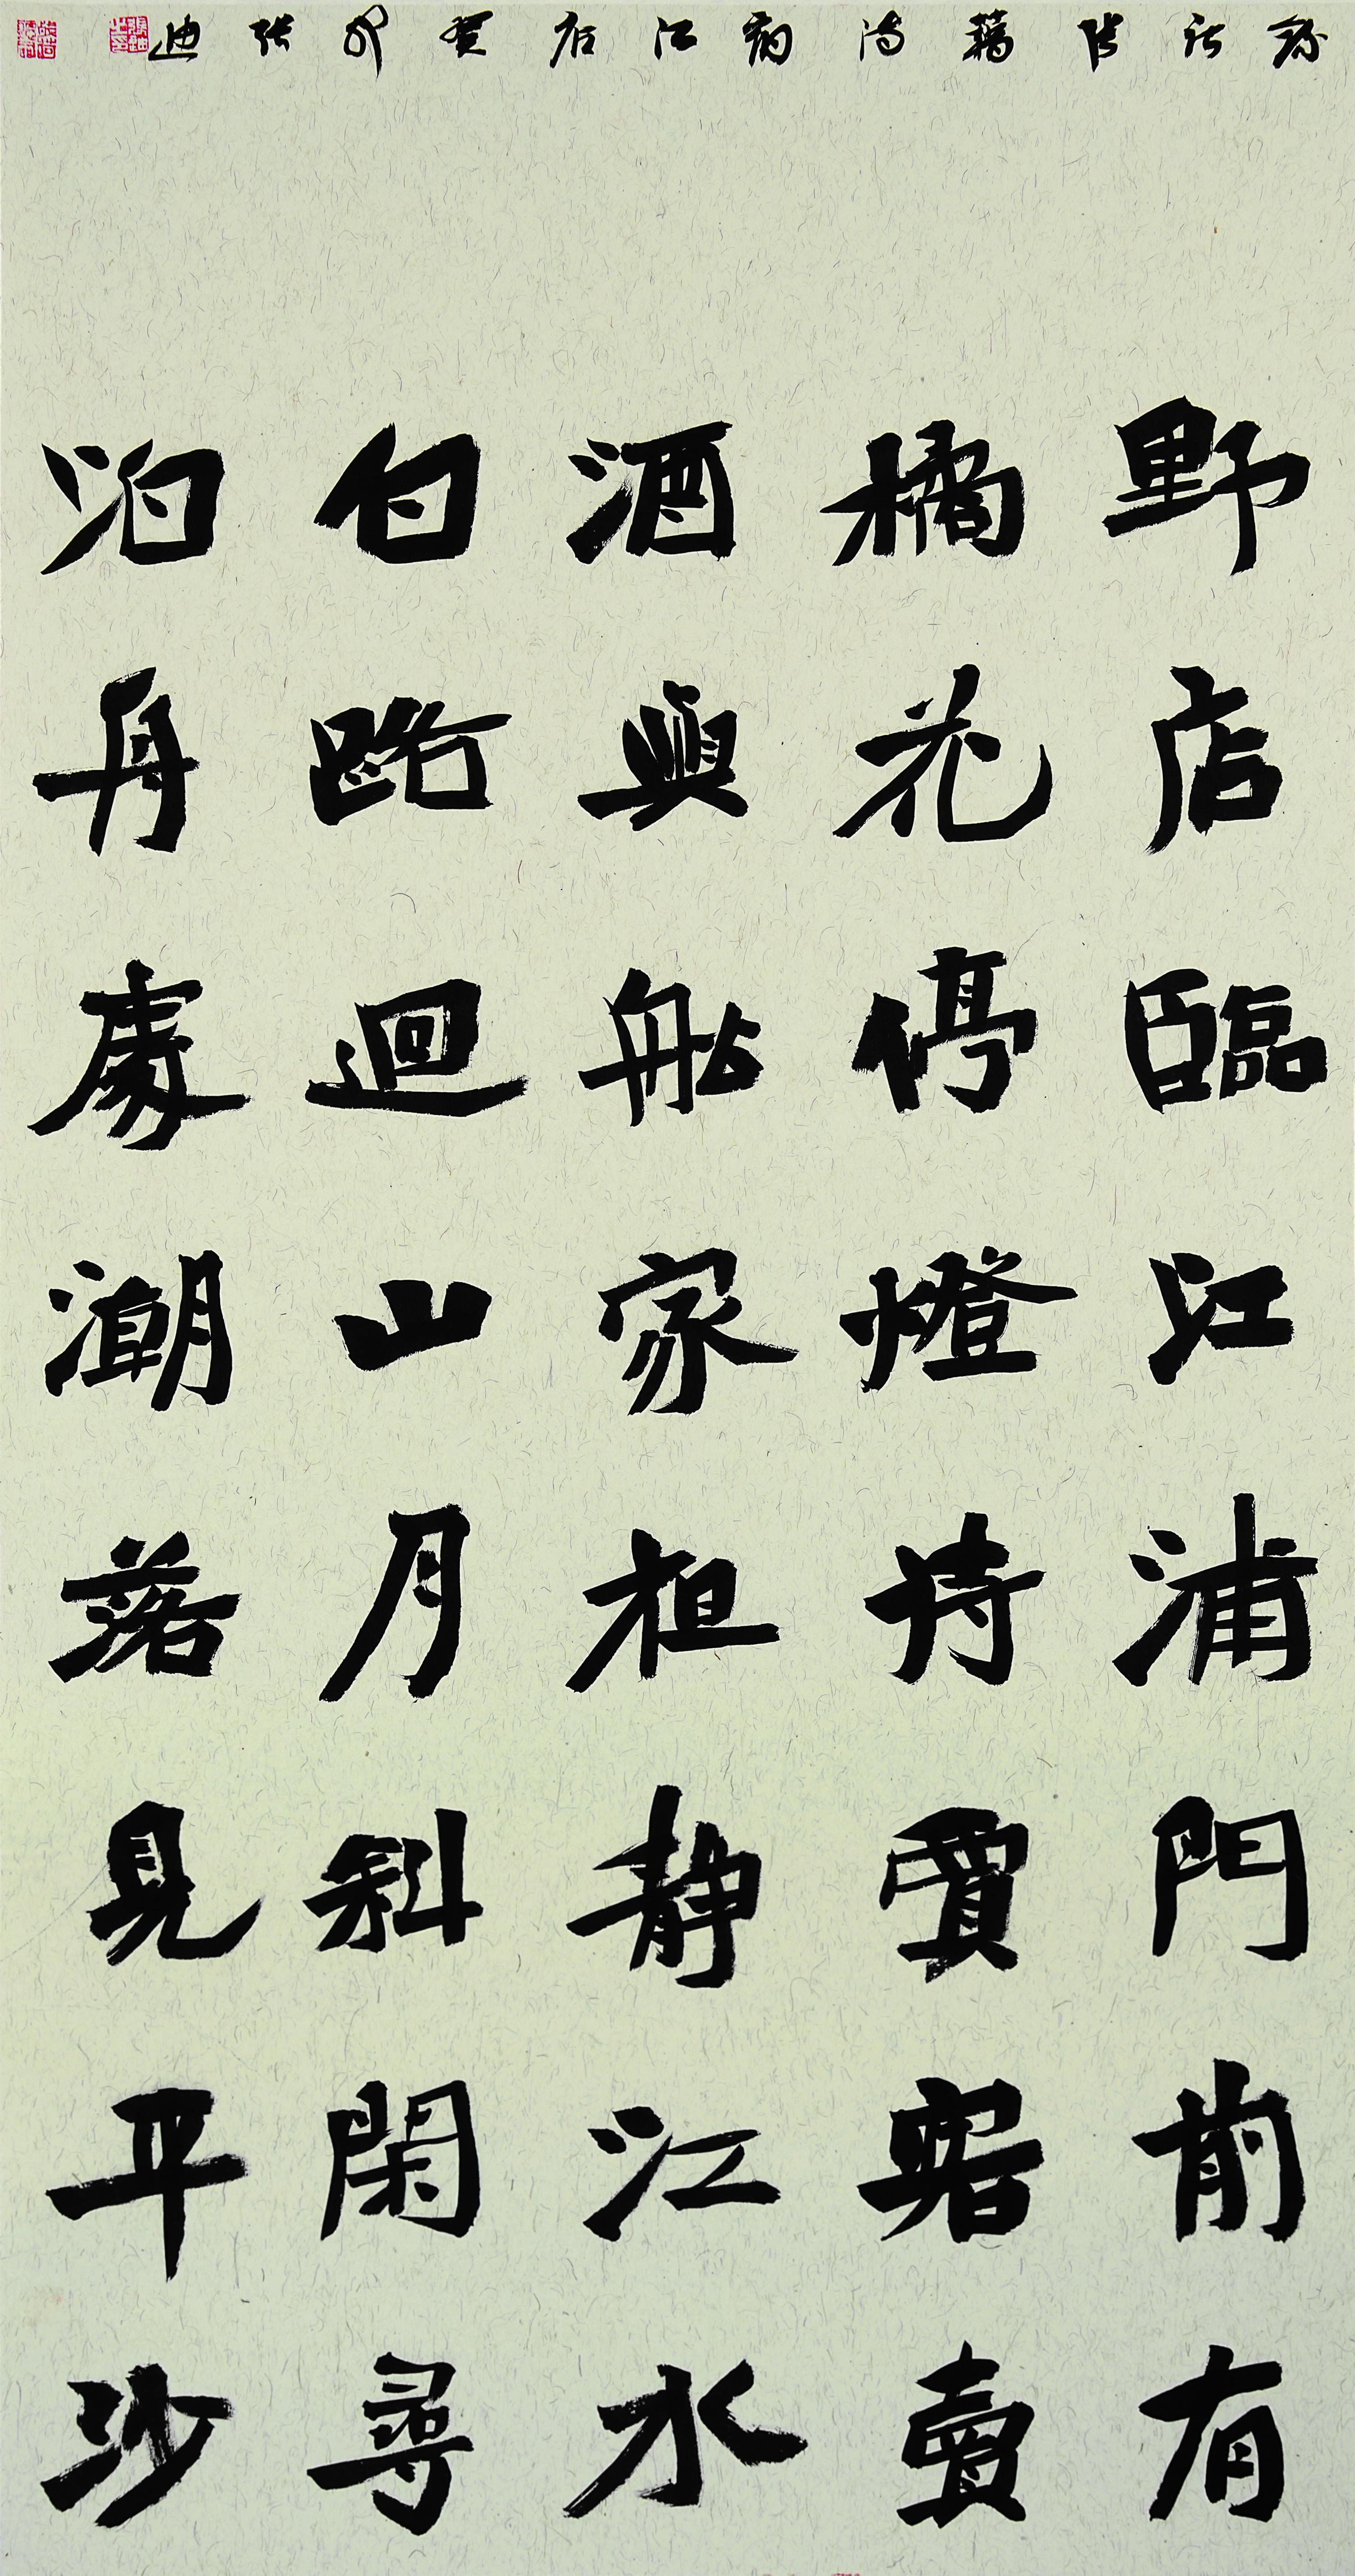 野店臨江浦門前有
橘花停燈待賈客賣
酒與船家静江水
白路迴山月斜閑尋
泊舟處潮落見平沙
錄張籍詩江店癸卯張迪